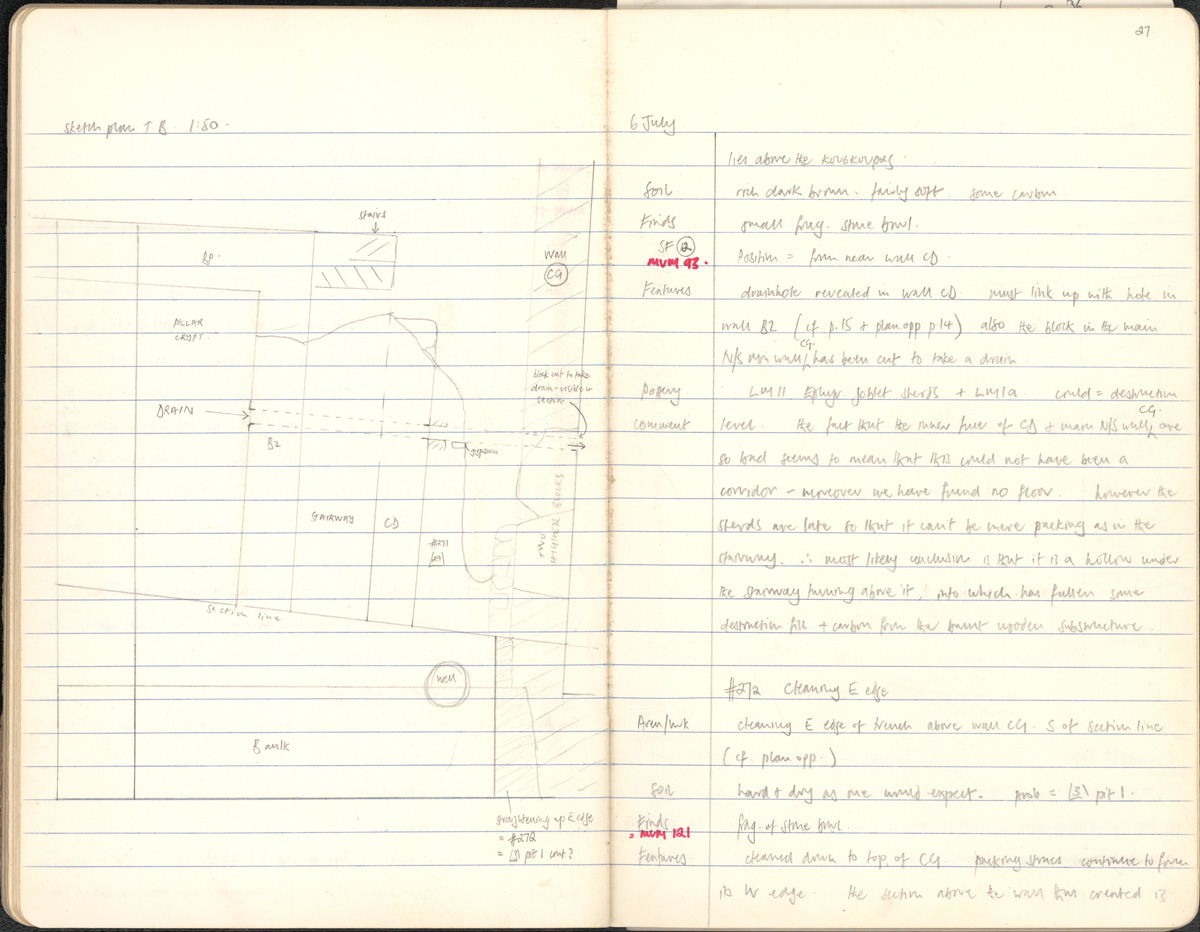 Sketch plan T.B. 1:50.
stairs
BP.
Wall
CG
PILLAR
CRYPT.
block cut to take
drain - visible in
section
DRAIN
B2
gypsum
STAIRWAY
CD
#271
TWO
HIGHER BLOCKS
section line
well
Baulk
straightening up E edge
= #272
= pit 1 cont?
27
6 July
lies above the κουσκουρας.
Soil rich dark brown. fairly soft. some carbon.
Finds small frag. stone bowl.
SF 12
MUM 93. Position = from near wall CD.
Features drainhole revealed in wall CD. must link up with hole in
wall B2 (cf p.15 & plan opp p.14) also the block in the main
N/S wall CG. has been cut to take a drain.
Pottery LMII Ephyr. goblet sherds + LMIa. could = destruction
comment level. the fact that the inner face of CD & main N/S wall CG. are
so bad seems to mean that this could not have been a
corridor - moreover we have found no floor. however the
sherds are late so that it can't be mere packing as in the
stairway. ∴ most likely conclusion is that it is a hollow under
the stairway turning above it, into which has fallen some
destruction fill + carbon from the burnt wooden substructure.
#272 Cleaning E edge
Area/wk cleaning E edge of trench above wall CG. S of section line
(cf. plan opp.)
Soil hard & dry as one would expect. prob = 3 pit 1.
Finds frag. of stone bowl.
= MUM 121
Features cleaned down to top of CG. packing stones continue to form
its W edge. the section above the wall thus created is